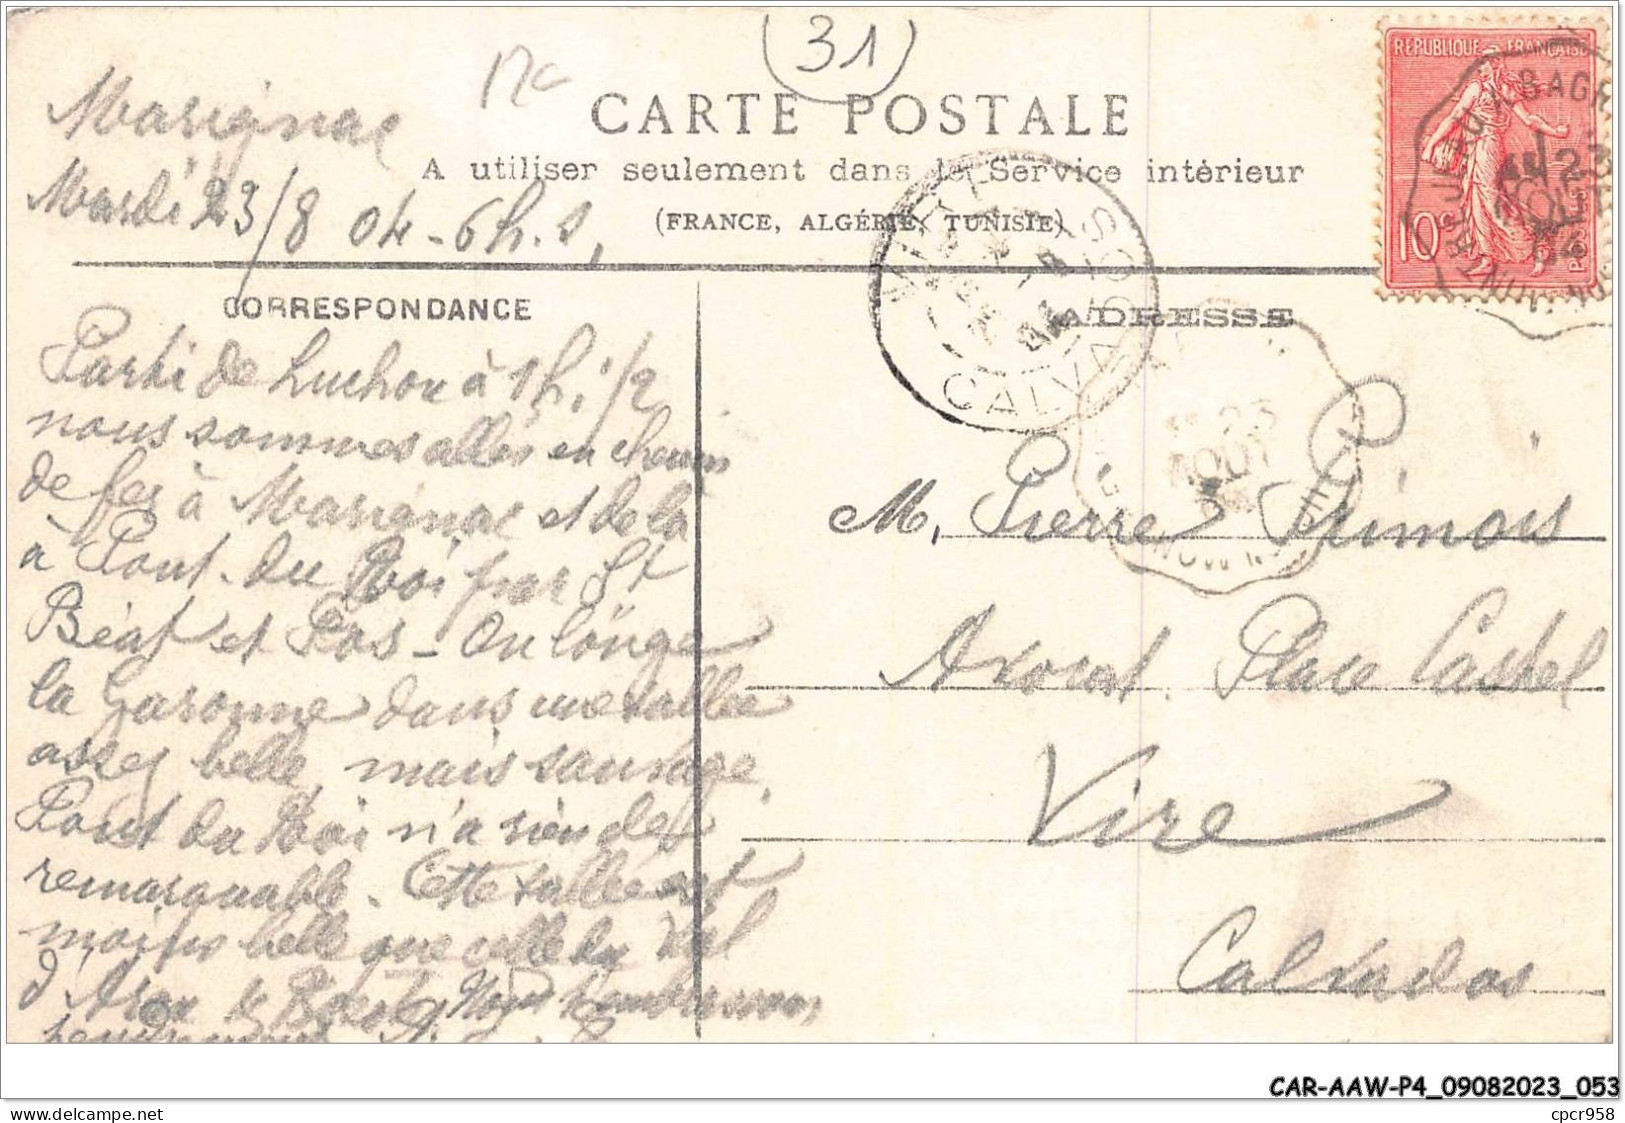 (31)
CARTE POSTALE
A utiliser seulement dans le Service intérieur
(FRANCE, ALGÉRIE, TUNISIE)
REPUBLIQUE FRANÇAISE
10c
POSTES
Marignac
Mardi 23/8 04 - 6h. s,
CORRESPONDANCE
ADRESSE
Parti de Luchon à 1h. 1/2
nous sommes allés en chemin
de fer à Marignac et de là
à Pont. du Roi par St
Béat et Fos - On longe
la Garonne dans une vallée
assez belle, mais sauvage.
Pont du Roi n'a rien de
remarquable. Cette vallée est
moins belle que celle du Val
d'Aran Nous t'embrassons,
VIRE
CALVADOS
23
AOUT
M. Pierre Primois
Avocat. Place Castel
Vire
Calvados
CAR-AAW-P4_09082023_053
www.delcampe.net
cpcr958